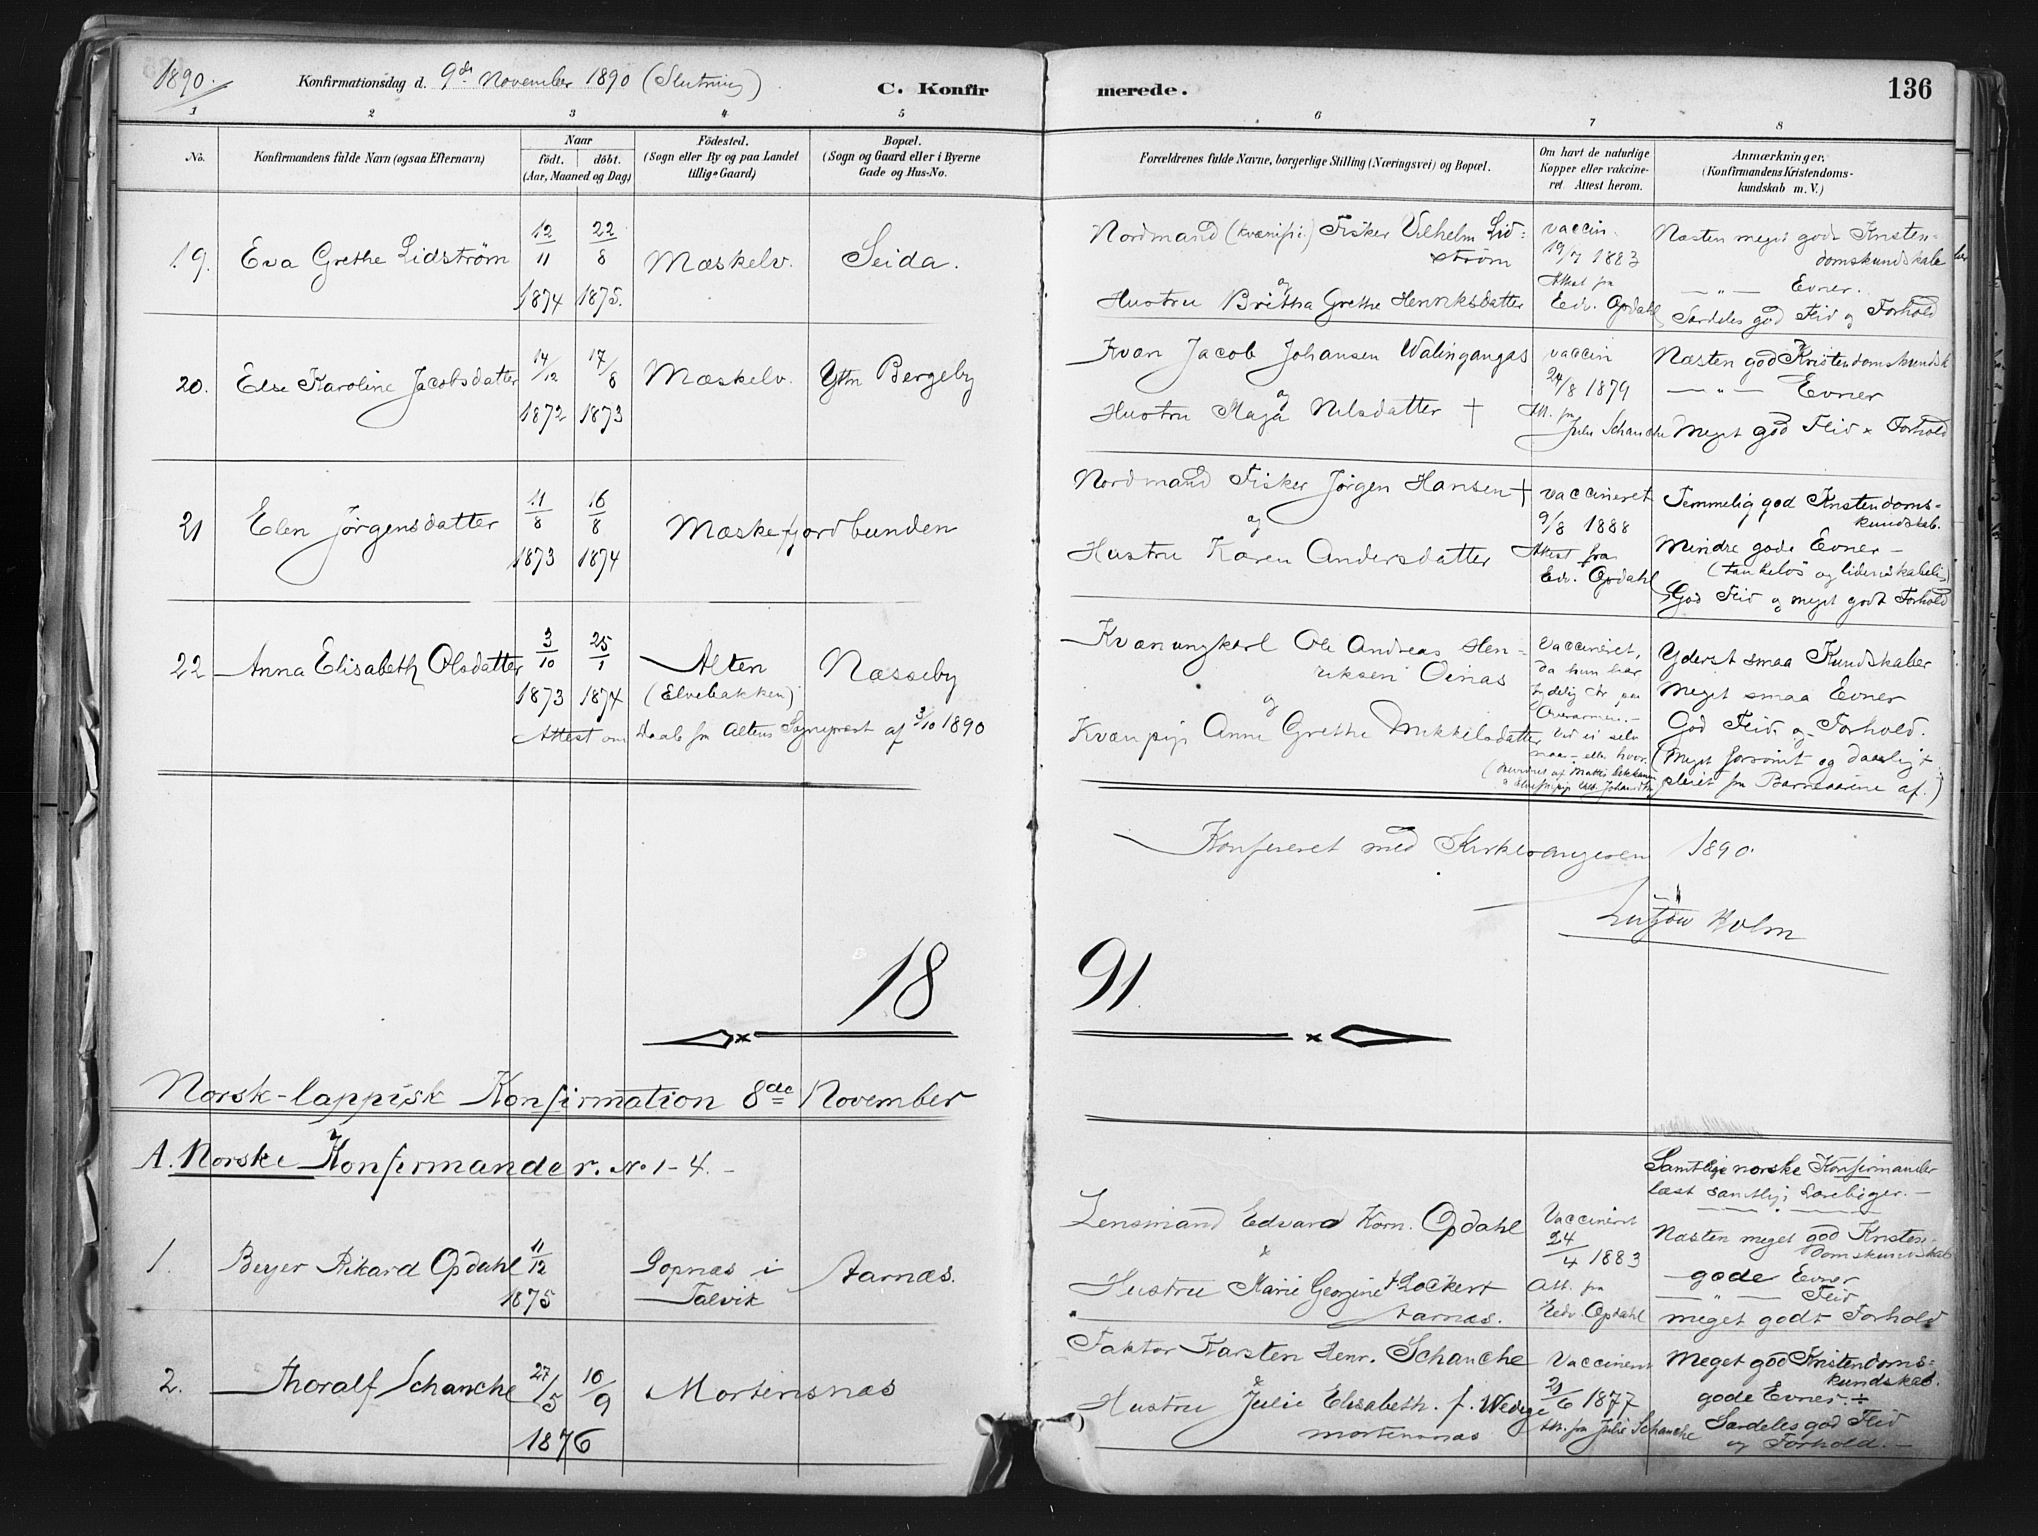 1890. Konfirmationsdag d. 9de November 1890 (Slutning) C. Konfirmerede. 136
1 2 3 4 5 6 7 8
No. Konfirmandens fulde Navn (ogsaa Efternavn)
Naar
födt. döbt.
(Aar, Maaned og Dag)
Födested.
(Sogn eller By og paa Landet
tillige Gaard)
Bopæl.
(Sogn og Gaard eller i Byerne
Gade og Hus-No.
Forældrenes fulde Navne, borgerlige Stilling (Næringsvei) og Bopæl.
Om havt de naturlige
Kopper eller vakcine-
ret. Attest herom.
Anmærkninger,
(Konfirmandens Kristendoms-
kundskab m. V.)
19. Eva Grethe Lidström 12/11 1874 22/8 1875. Mæskelv. Seida.
Nordmand (kvænsk) Fisker Vilhelm Lid-
ström
og
Hustru Britha Grethe Henriksdatter
vaccin.
19/7 1883
Attest fra
Edv. Opdahl
Næsten meget god Kristen-
domskundskab
— " — Evner.
Særdeles god Flid og Forhold
20. Else Karoline Jacobsdatter 14/12 1872 17/8 1873 Mæskelv. Ytn Bergeby
Kvæn Jacob Johansen Walingangas
og
Hustru Maja Nilsdatter †
vaccin
24/8 1879
Att. fra
Julie Schanche
Næsten god Kristendomskundsk
— " — Evner
Meget god Flid & Forhold
21 Elen Jörgensdatter 11/8 1873 16/8 1874 Mæskefjordbunden
Nordmand Fisker Jörgen Hansen †
og
Hustru Karen Andersdatter
vaccineret
9/8 1888
Attest fra
Edv. Opdahl
Temmelig god Kristendoms-
kundskab.
Mindre gode Evner —
(tankelös og lidenskabelig)
God Flid og meget godt Forhold
22 Anna Elisabeth Olsdatter 3/10 1873 25/1 1874 Alten
(Elvebakken) Næsseby
Attest om Daab fra Altens Sognepræst af 3/10 1890
Kvænungkarl Ole Andreas Hen-
riksen Oinas
og
Kvænpige Anne Grethe Mikkelsdatter
Vaccineret,
da hun har
tydelig Ar paa
Overarmen. —
Ved ei selv
naar eller hvor.
Yderst smaa Kundskaber
Meget smaa Evner
God Flid og Forhold.
(Meget forsömt og daarligt
pleiet fra Barneaarene af.)
Konfereret med Kirkesangeren 1890.
Lützow Holm
18 91
Norsk-lappisk Konfirmation 8de November
A. Norske Konfirmander. No 1-4. —
Samtlige norske Konfirmander
læst samtlige Lærebøger. —
1. Beyer Rikard Opdahl 11/12 1875 Gopnæs i
Talvik Aarnæs.
Lensmand Edvard Korn. Opdahl
&
Hustru Marie Georgine f. Lockert
Aarnæs.
Vaccineret
24/4 1883
Att. fra
Edv. Opdahl
Næsten meget god Kristen-
domskundskab
gode Evner
— " — Flid
meget godt Forhold
2. Thoralf Schanche 27/5 10/9 1876 Mortensnæs
Faktor Karsten Henr. Schanche
&
Hustru Julie Elisabeth f. Wedege
Mortensnæs
Vaccineret
/6 1877
Att. fra Julie Schanche
Meget god Kristendoms-
kundskab.
gode Evner ÷
Særdeles god Flid
og Forhold. —